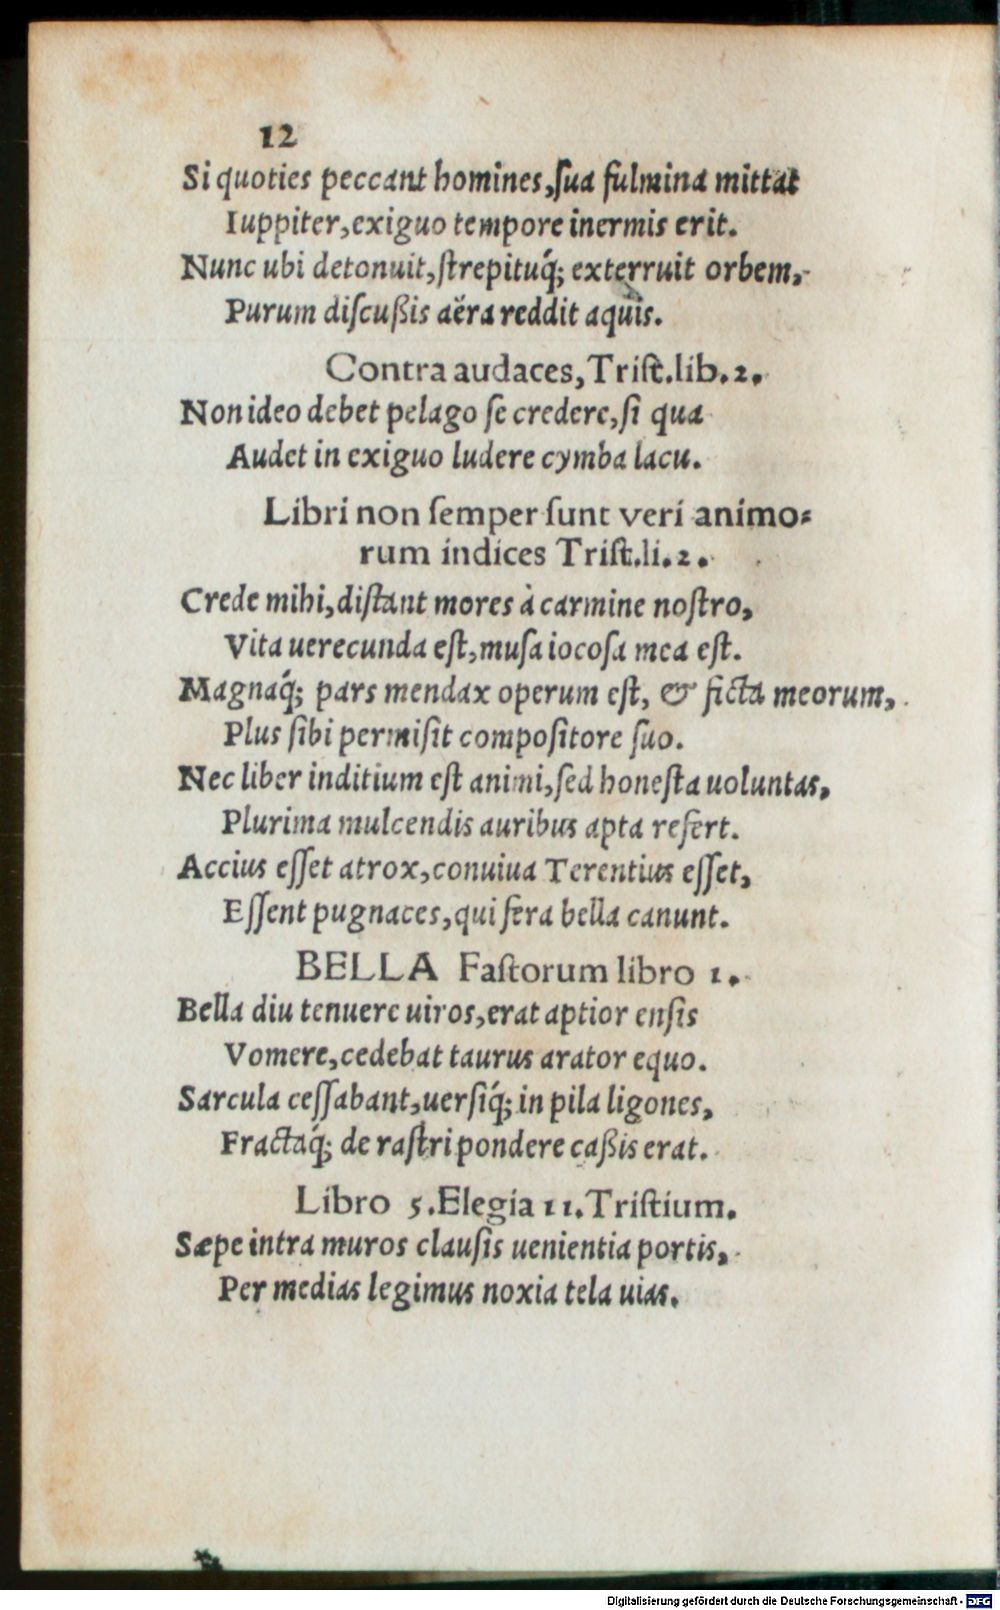 12
Si quoties peccant homines, ſua fulmina mittat
Iuppiter, exiguo tempore inermis erit.
Nunc ubi detonuit, ſtrepituq́; exterruit orbem,
Purum diſcußis aëra reddit aquis.
Contra audaces, Triſt.lib.2.
Non ideo debet pelago ſe credere, ſi qua
Audet in exiguo ludere cymba lacu.
Libri non ſemper ſunt veri animo⸗
rum indices Triſt.li.2.
Crede mihi, diſtant mores à carmine noſtro,
Vita uerecunda eſt, muſa iocoſa mea eſt.
Magnaq́; pars mendax operum eſt, & ficta meorum,
Plus ſibi permiſit compoſitore ſuo.
Nec liber inditium eſt animi, ſed honeſta uoluntas,
Plurima mulcendis auribus apta refert.
Accius eſſet atrox, conuiua Terentius eſſet,
Eſſent pugnaces, qui fera bella canunt.
BELLA Faſtorum libro 1.
Bella diu tenuere uiros, erat aptior enſis
Vomere, cedebat taurus arator equo.
Sarcula ceſſabant, uerſiq́; in pila ligones,
Fractaq́; de raſtri pondere caßis erat.
Libro 5. Elegia 11. Triſtium.
Sæpe intra muros clauſis uenientia portis,
Per medias legimus noxia tela uias.
Digitalisierung gefördert durch die Deutsche Forschungsgemeinschaft - DFG